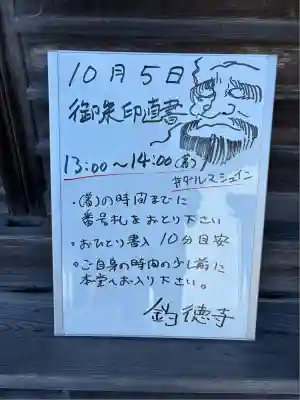 10月5日
御朱印直書
13:00〜14:00(着)
#ダルマシュイン
・(着)の時間までに
番号札をおとり下さい
・おひとり書入10分目安
・ご自身の時間の少し前に
本堂へお入り下さい。
釣徳寺